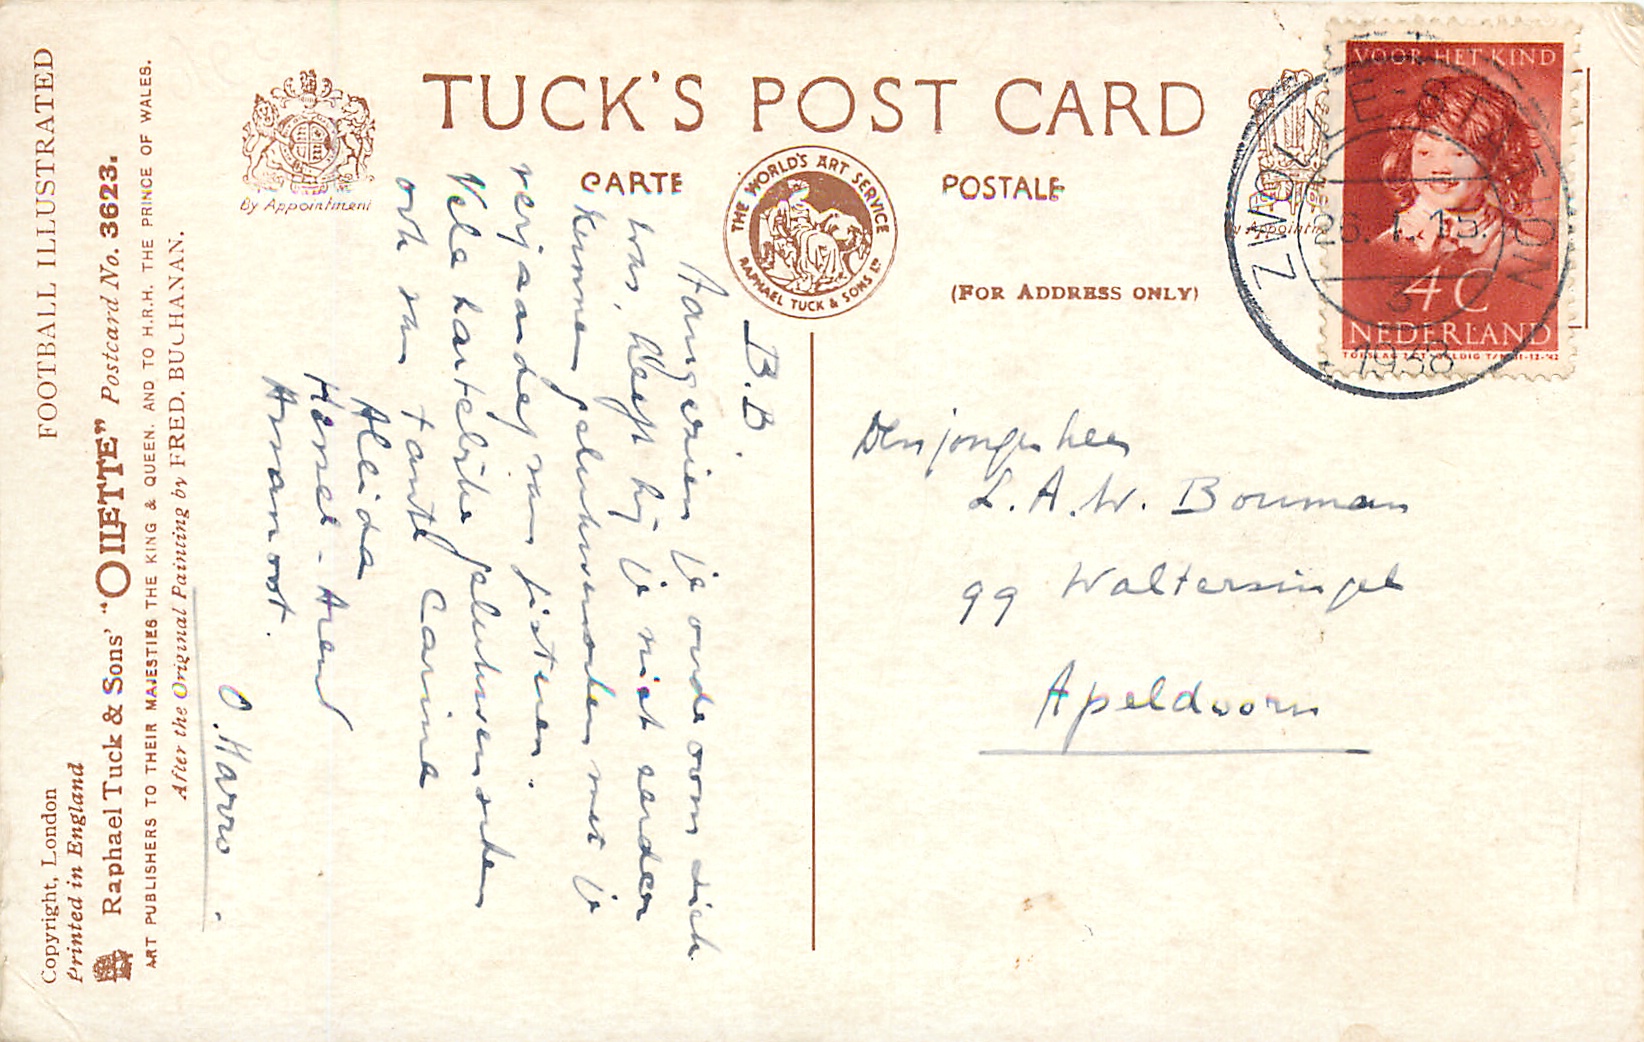 FOOTBALL ILLUSTRATED
Copyright, London
Printed in England
Raphael Tuck & Sons' "OILETTE" Postcard No. 3623.
ART PUBLISHERS TO THEIR MAJESTIES THE KING & QUEEN. AND TO H.R.H. THE PRINCE OF WALES.
After the Original Painting by FRED. BUCHANAN.
TUCK'S POST CARD
CARTE POSTALE
By Appointment
By Appointm
THE WORLD'S ART SERVICE
RAPHAEL TUCK & SONS LTD
(FOR ADDRESS ONLY)
VOOR HET KIND
4 C
NEDERLAND
ZWOLLE-STATION
1938
B.B
Aangezien je oude oom ziek
was, heeft hij je niet eerder
kunnen gelukwenschen met je
verjaardag van gisteren.
Vele hartelijke gelukwenschen
ook van tante Carine
Aleida
Hansel - Arend
Annanoot.
O. Harro.
Den jongen heer
L. A. W. Bouman
99 Waltersingel
Apeldoorn